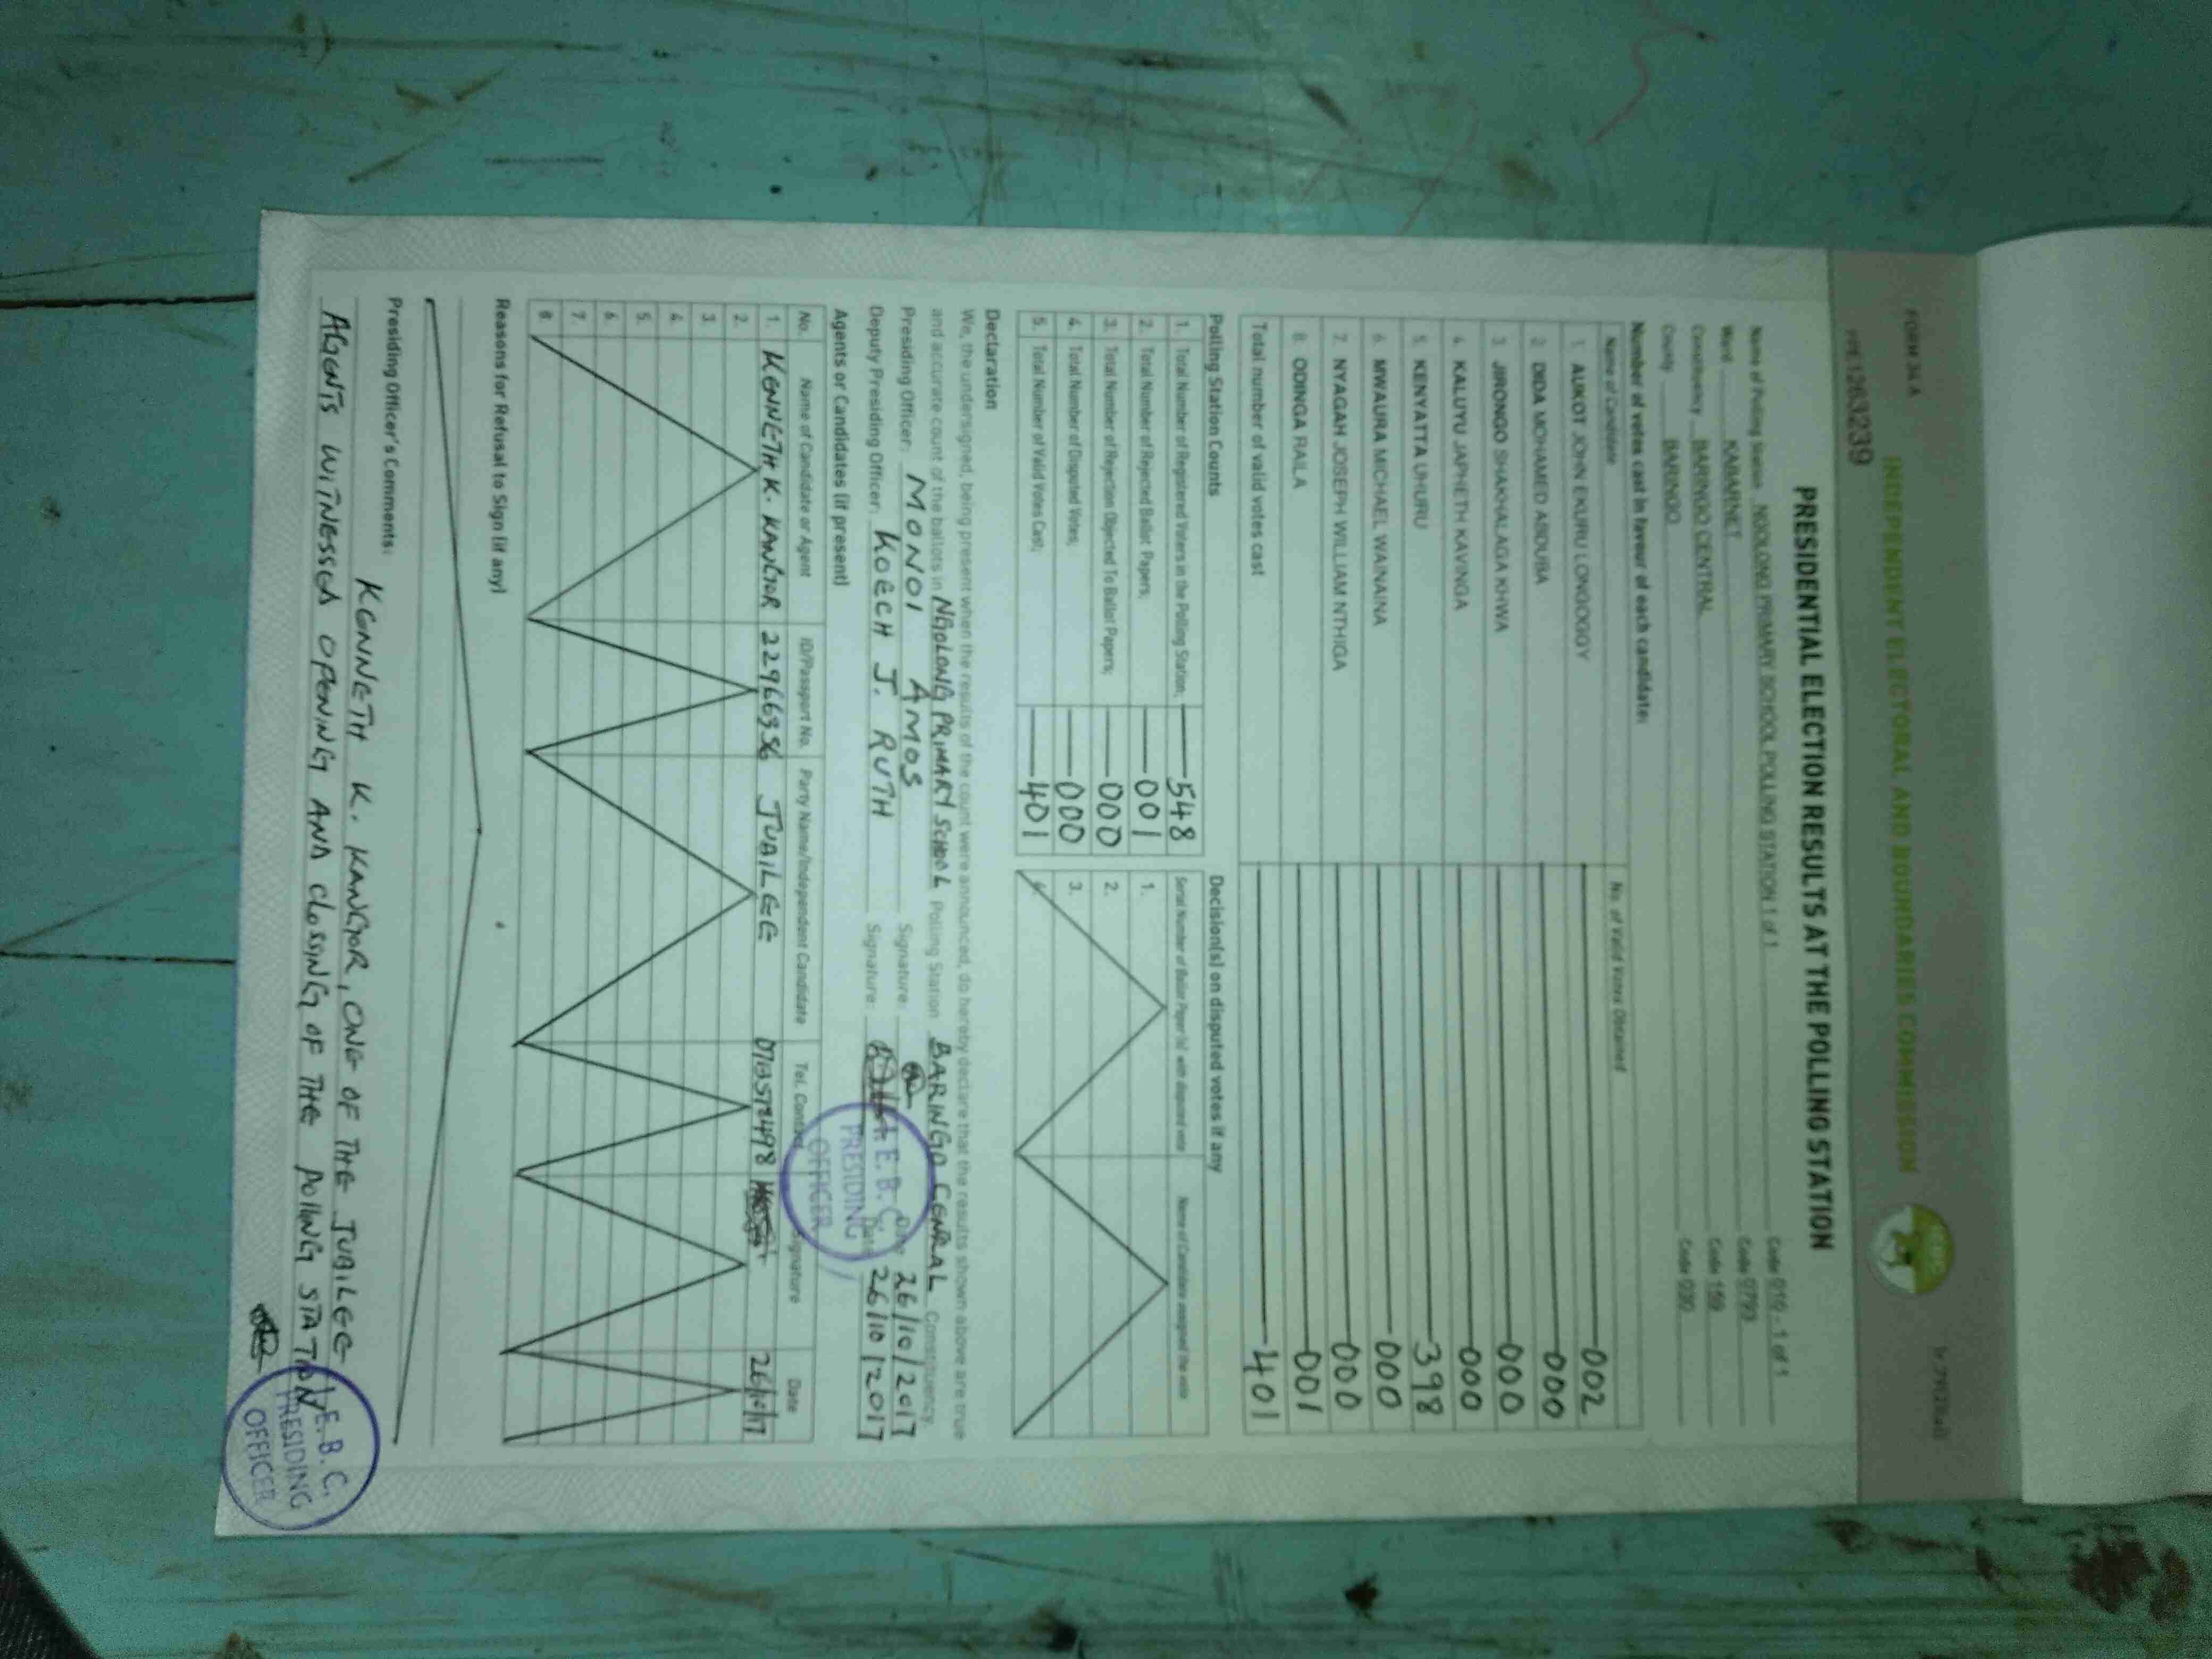 FORM 34 A
INDEPENDENT ELECTORAL AND BOUNDARIES COMMISSION
PRESIDENTIAL ELECTION RESULTS AT THE POLLING STATION
Name of Polling Station NGOLONG PRIMARY SCHOOL POLLING STATION 1 of 1 Code 1 of 1
Ward KABARNET Code 0793
Constituency BARINGO CENTRAL Code 159
County BARINGO Code 030
Number of votes cast in favour of each candidate:
Name of Candidate No. of Valid Votes Obtained
1. AUKOT JOHN EKURU LONGOGGY 002
2. DIDA MOHAMED ABDUBA 000
3. JIRONGO SHAKHALAGA KHWA 000
4. KALUYU JAPHETH KAVINGA 000
5. KENYATTA UHURU 398
6. MWAURA MICHAEL WAINAINA 000
7. NYAGAH JOSEPH WILLIAM NTHIGA 000
8. ODINGA RAILA 001
Total number of valid votes cast 401
Polling Station Counts
1. Total Number of Registered Voters in the Polling Station; 548
2. Total Number of Rejected Ballot Papers; 001
3. Total Number of Rejection Objected To Ballot Papers; 000
4. Total Number of Disputed Votes; 000
5. Total Number of Valid Votes Cast; 401
Decision(s) on disputed votes if any
Serial Number of Ballot Paper (s) with disputed vote Name of Candidate assigned the vote
1.
2.
3.
4.
Declaration
We, the undersigned, being present when the results of the count were announced, do hereby declare that the results shown above are true
and accurate count of the ballots in NGOLONG PRIMARY SCHOOL Polling Station BARINGO CENTRAL Constituency.
Presiding Officer: MONOI AMOS Signature: Date 26/10/2017
Deputy Presiding Officer: KOECH J. RUTH Signature: Date 26/10/2017
I. E. B. C.
PRESIDING
OFFICER
Agents or Candidates (if present)
No. Name of Candidate or Agent ID/Passport No. Party Name/Independent Candidate Tel. Contact Signature Date
1. KENNETH K. KANGOR 22966356 JUBILEE 0713578498 26/10/17
2.
3.
4.
5.
6.
7.
8.
Reasons for Refusal to Sign (if any)
Presiding Officer's Comments: KENNETH K. KANGOR, ONE OF THE JUBILEE
AGENTS WITNESSED OPENING AND CLOSING OF THE POLLING STATION
I. E. B. C.
PRESIDING
OFFICER